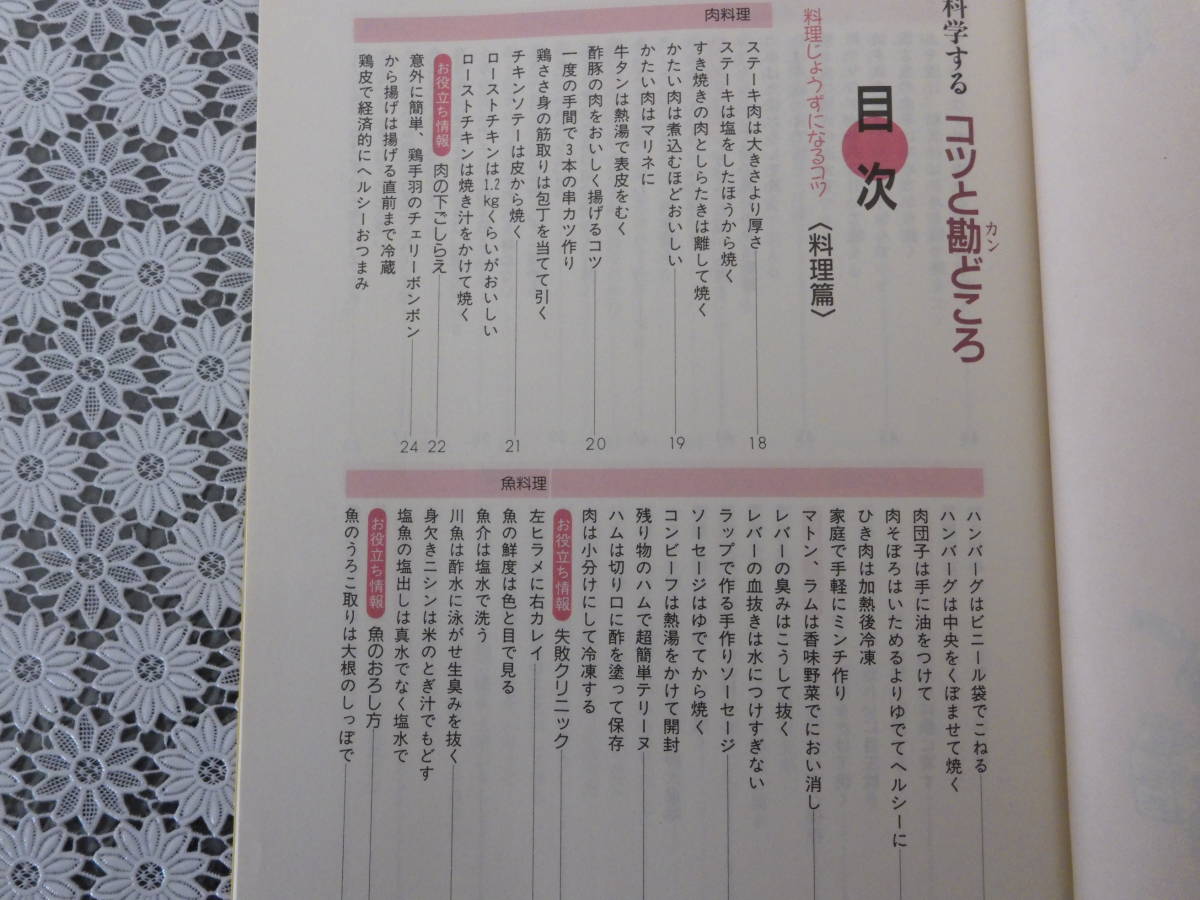 科学する コツと勘どころ
カン
目次
料理じょうずになるコツ〈料理篇〉
肉料理
ステーキ肉は大きさより厚さ 18
ステーキは塩をしたほうから焼く
すき焼きの肉としらたきは離して焼く
かたい肉は煮込むほどおいしい 19
かたい肉はマリネに
牛タンは熱湯で表皮をむく
酢豚の肉をおいしく揚げるコツ 20
一度の手間で3本の串カツ作り
鶏ささ身の筋取りは包丁を当てて引く
チキンソテーは皮から焼く 21
ローストチキンは1.2kgくらいがおいしい
ローストチキンは焼き汁をかけて焼く
お役立ち情報 肉の下ごしらえ 22
意外に簡単、鶏手羽のチェリーボンボン 24
から揚げは揚げる直前まで冷蔵
鶏皮で経済的にヘルシーおつまみ
ハンバーグはビニール袋でこねる
ハンバーグは中央をくぼませて焼く
肉団子は手に油をつけて
肉そぼろはいためるよりゆでてヘルシーに
ひき肉は加熱後冷凍
家庭で手軽にミンチ作り
マトン、ラムは香味野菜でにおい消し
レバーの臭みはこうして抜く
レバーの血抜きは水につけすぎない
ラップで作る手作りソーセージ
ソーセージはゆでてから焼く
コンビーフは熱湯をかけて開封
残り物のハムで超簡単テリーヌ
ハムは切り口に酢を塗って保存
肉は小分けにして冷凍する
お役立ち情報 失敗クリニック
魚料理
左ヒラメに右カレイ
魚の鮮度は色と目で見る
魚介は塩水で洗う
川魚は酢水に泳がせ生臭みを抜く
身欠きニシンは米のとぎ汁でもどす
塩魚の塩出しは真水でなく塩水で
お役立ち情報 魚のおろし方
魚のうろこ取りは大根のしっぽで